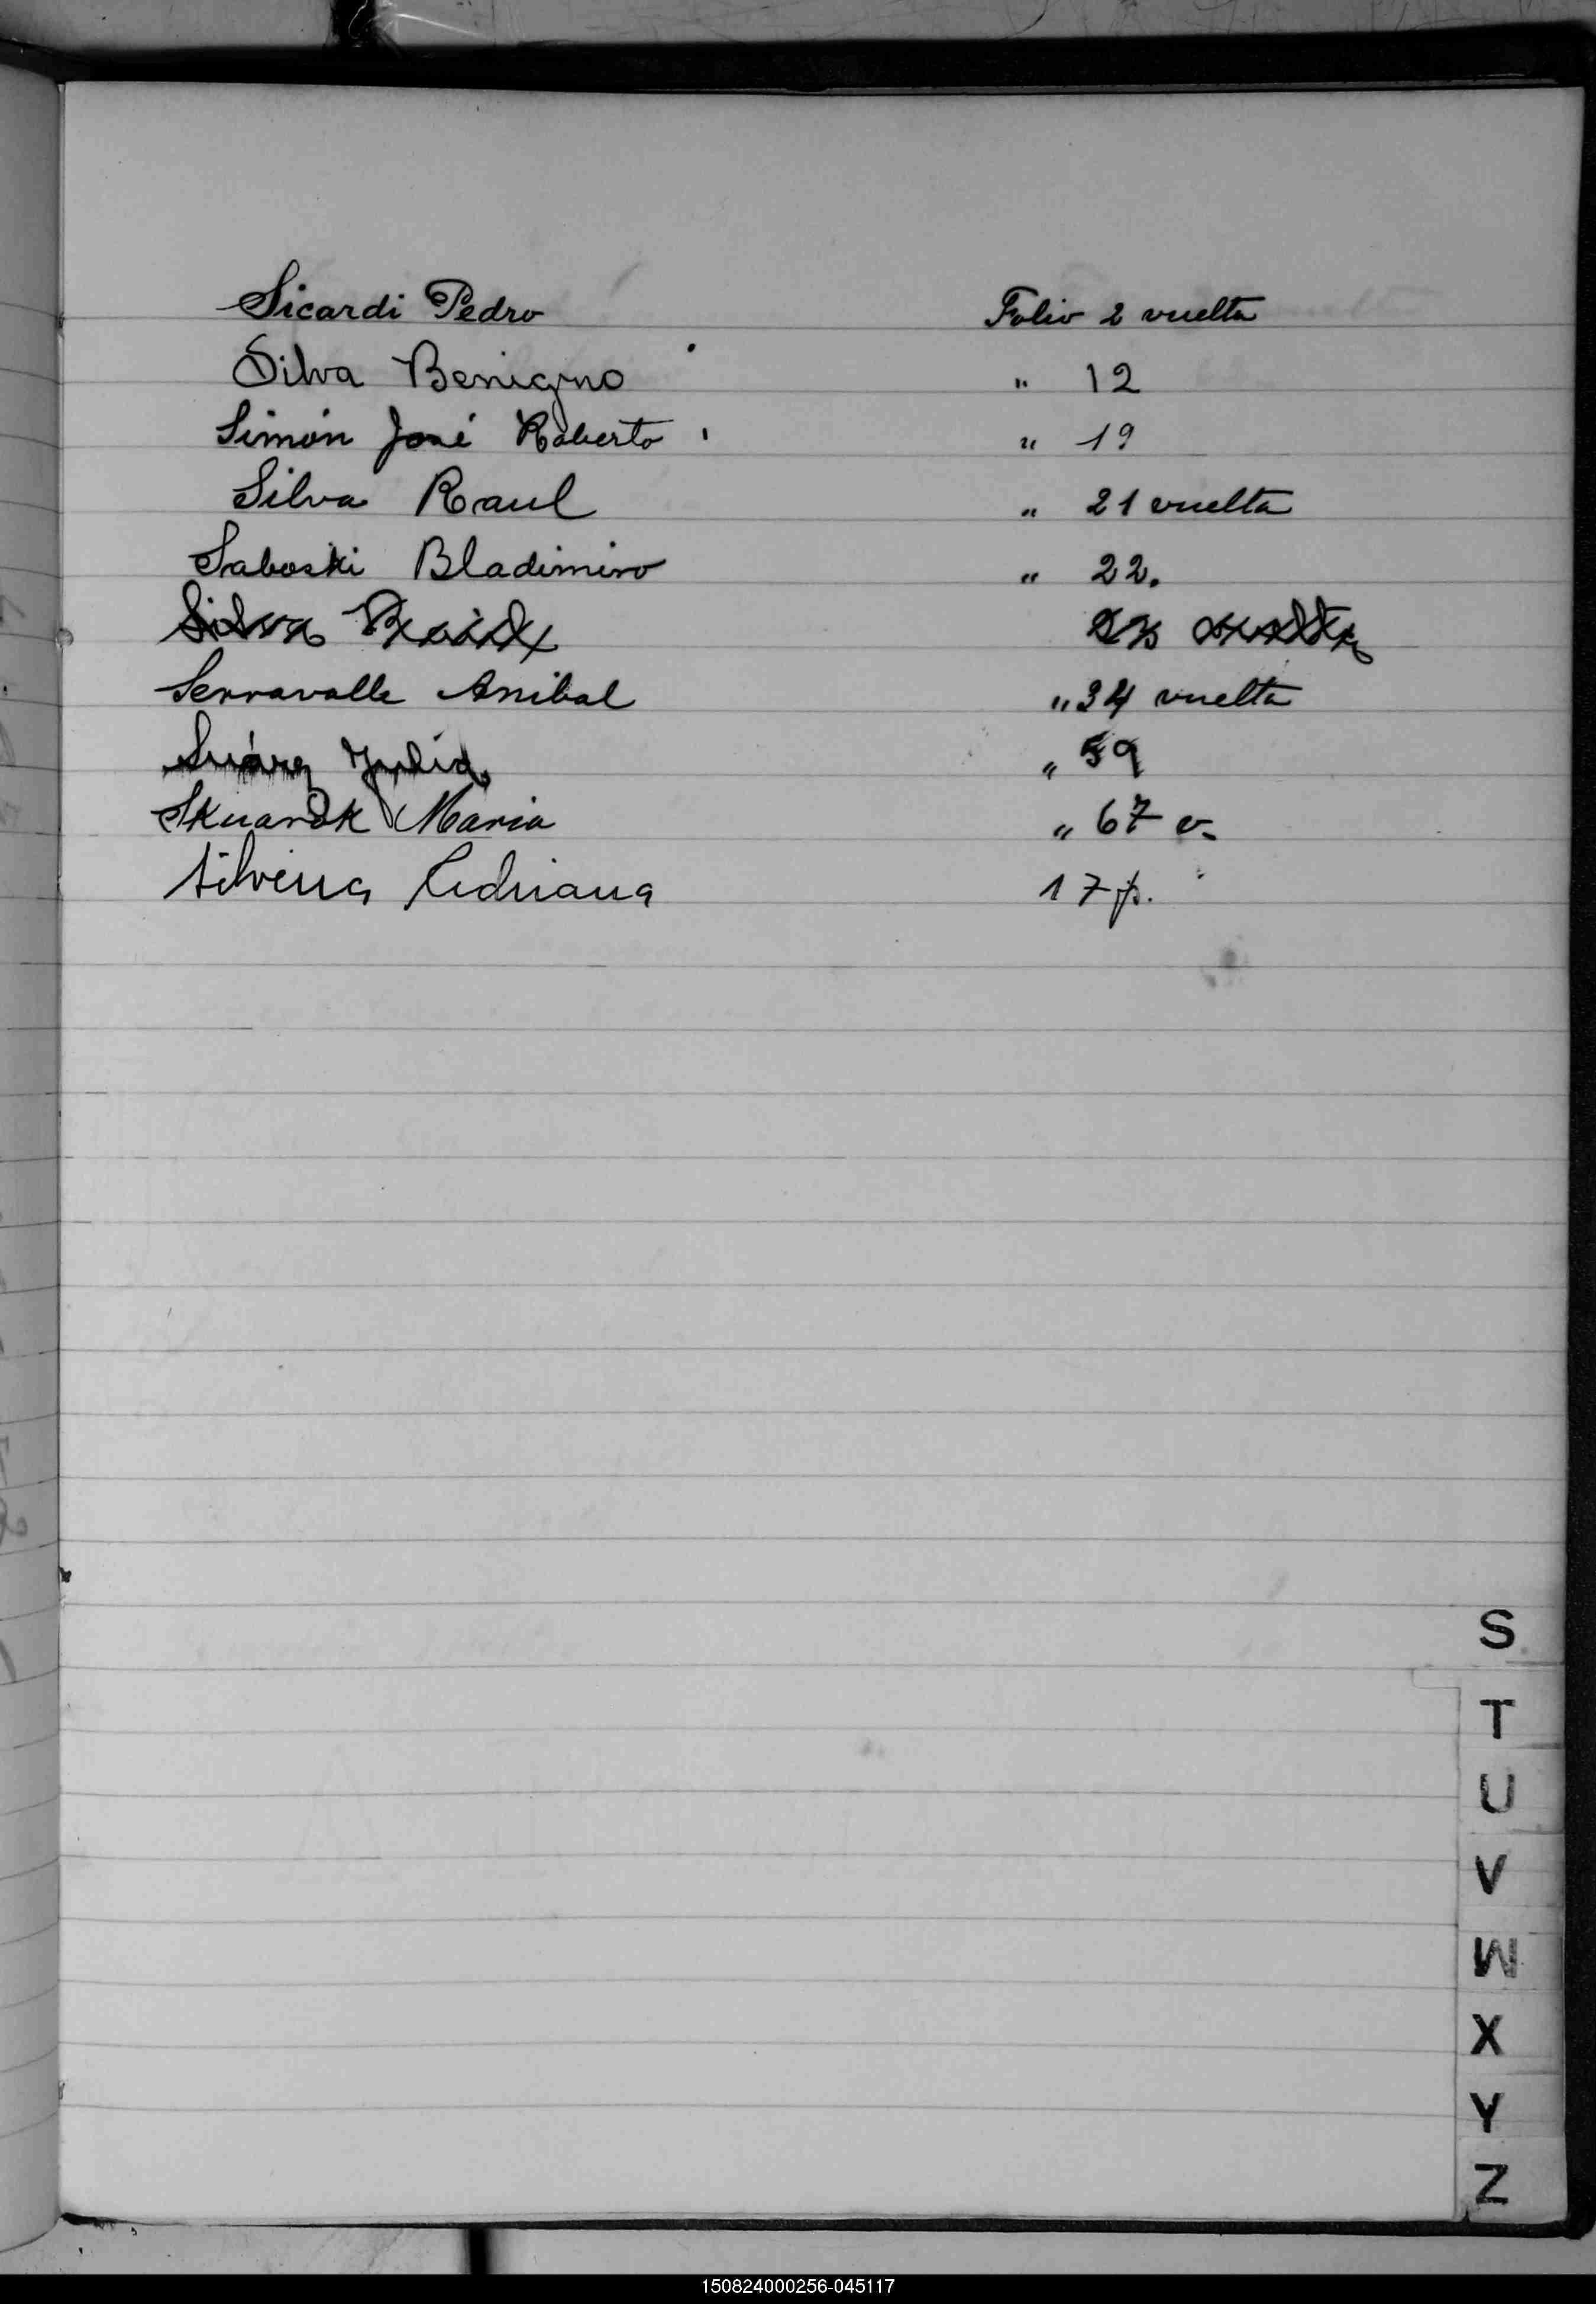 Sicardi Pedro Folio 2 vuelta
Silva Benigno " 12
Simón José Roberto " 19
Silva Raul " 21 vuelta
Saboski Bladimiro " 22.
Silva
Serravalle Anibal " 34 vuelta
Suárez Julia " 59
Maria " 67 v.
Silveira Adriana 17 p.
S
T
U
V
W
X
Y
Z
150824000256-045117